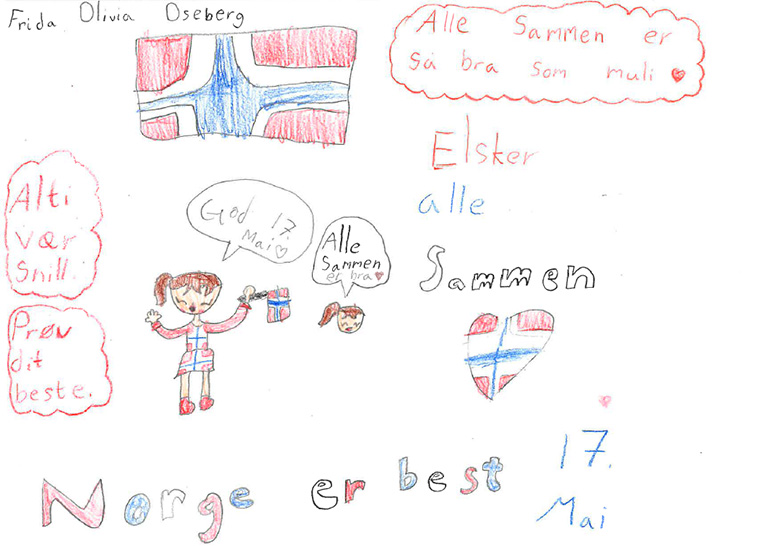 Frida Olivia Oseberg
Alle Sammen er
så bra som muli
Elsker
alle
Sammen
Alti
vær
Snill.
God 17.
Mai
Alle
Sammen
er bra
Prøv
dit
beste.
17.
Mai
Norge er best